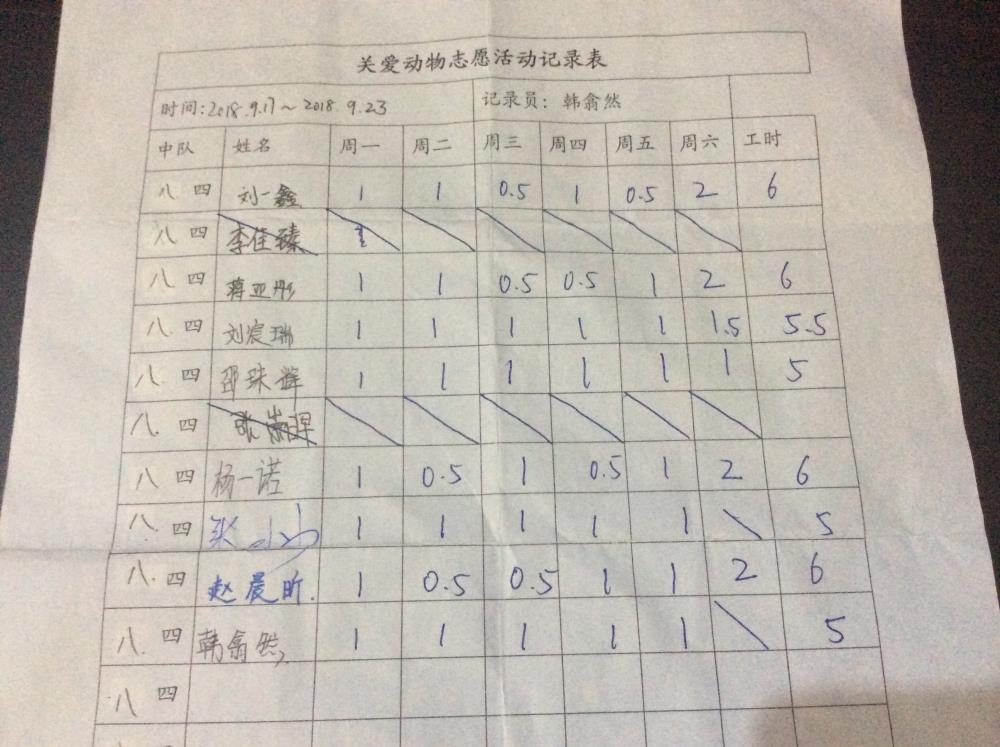 关爱动物志愿活动记录表
时间:2018.9.17～2018.9.23 记录员：韩翕然
中队 姓名 周一 周二 周三 周四 周五 周六 工时
八 四 刘一鑫 1 1 0.5 1 0.5 2 6
八 四 李佳臻
八 四 蒋亚彤 1 1 0.5 0.5 1 2 6
八.四 刘宸瑞 1 1 1 1 1 1.5 5.5
八.四 邵珠辉 1 1 1 1 1 1 5
八.四 张
八 四 杨一诺 1 0.5 1 0.5 1 2 6
八.四 张 1 1 1 1 1 \ 5
八.四 赵晨昕. 1 0.5 0.5 1 1 2 6
八.四 韩翕然 1 1 1 1 1 \ 5
八 四